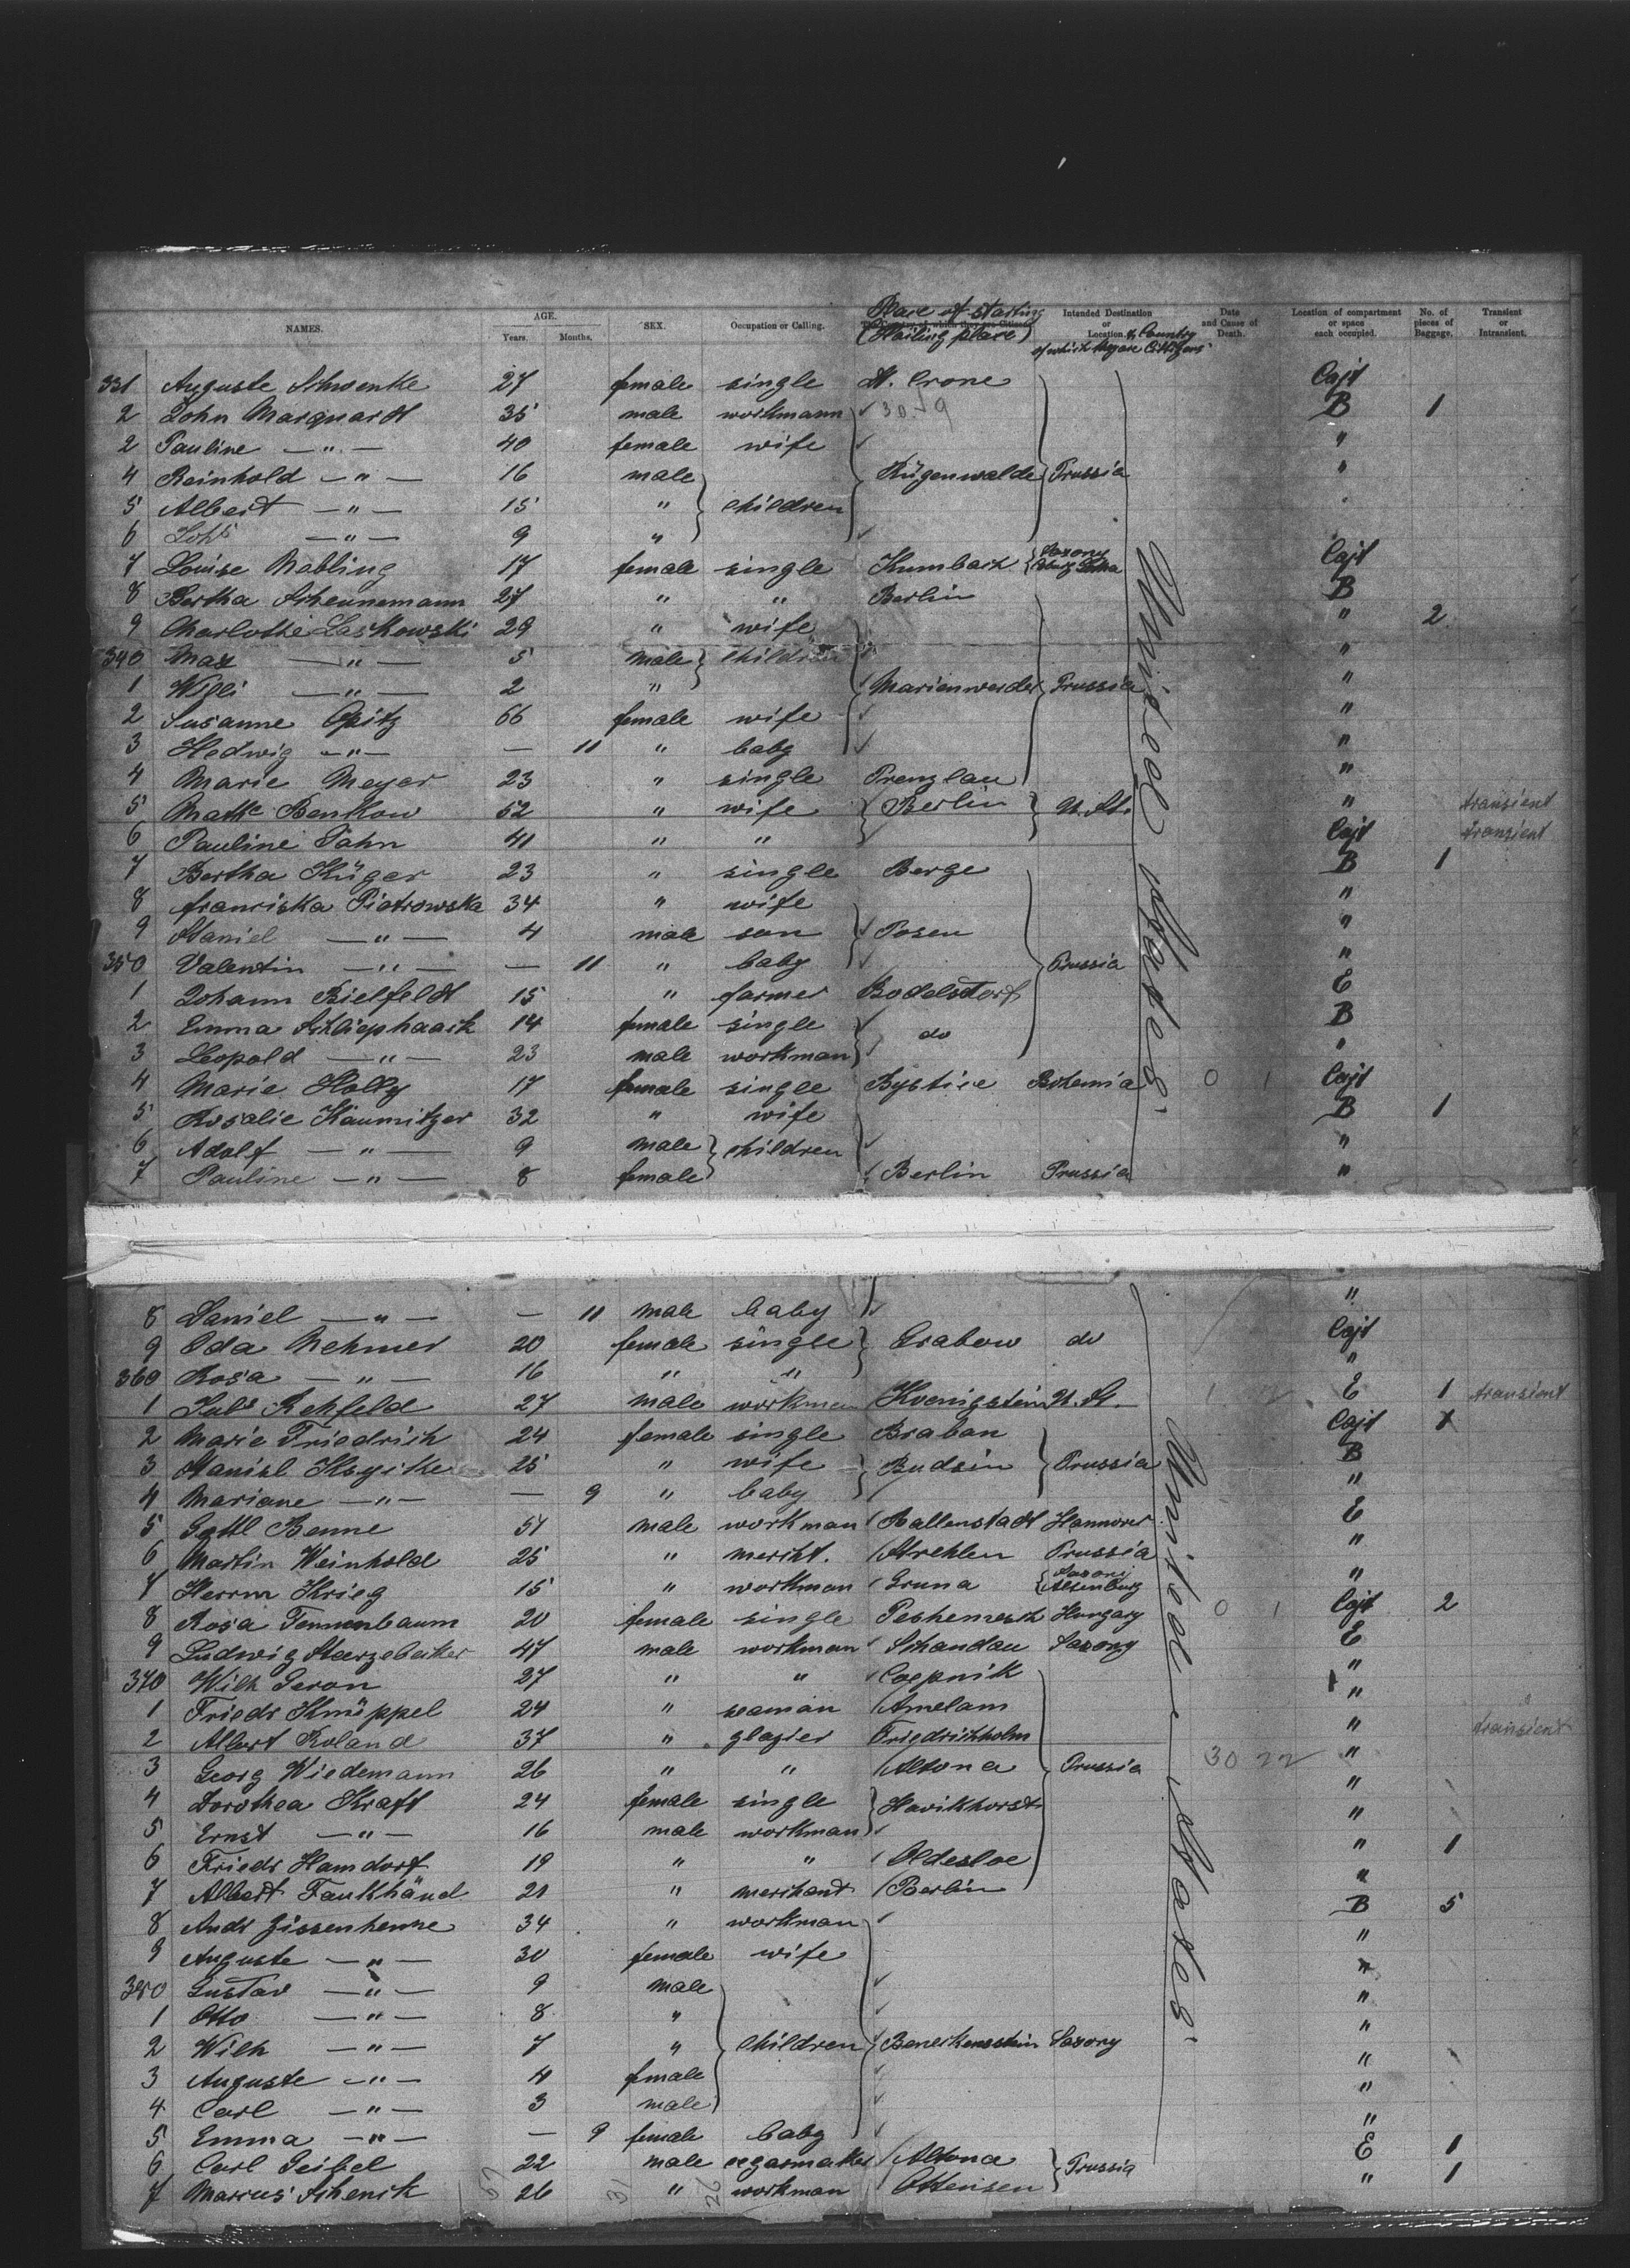 NAMES. AGE. Years. Months. SEX. Occupation or Calling. Place of starting (Hailing place) Intended Destination or Location. & Country of which they are Citizens Date and Cause of Death. Location of compartment or space each occupied. No. of pieces of Baggage. Transient or Intransient.
331 Auguste Schwenke 27 female single D. Crone Cajt
2 John Marquardt 35 male workmann 30 B 1
2 Pauline — " — 40 female wife "
4 Reinhold — " — 16 male Rügenwalde Prussia "
5 Albert — " — 15 " children
6 Johs — " — 9 "
7 Louise Nabling 17 female single Krumbach Saxony Cajt
8 Bertha Scheunemann 27 " " Berlin B
9 Charlotte Laskowski 29 " wife " 2
340 Max — " — 5 male children "
1 Willi — " — 2 " Marienwerder Prussia "
2 Susanne Opitz 66 female wife "
3 Hedwig — " — — 11 " baby "
4 Marie Meyer 23 " single Prenzlau "
5 Benkow 52 " wife Berlin U. St. " transient
6 Pauline Jahn 41 " " Cajt transient
7 Bertha Krüger 23 " single Berge B 1
8 Franciska Piotrowska 34 " wife "
9 Staniel — " — 4 male son Posen "
350 Valentin — " — — 11 " baby Prussia "
1 Johann Bielfeldt 15 " farmer Bodelsdorf E
2 Emma Schliephaack 14 female single do B
3 Leopold — " — 23 male workman "
4 Marie Holly 17 female single Bystice Bohemia 0 1 Cajt
5 Rosalie Kaumitzer 32 " wife B 1
6 Adolf — " — 9 male children "
7 Pauline — " — 8 female Berlin Prussia "
United States
8 Daniel — " — — 11 male baby "
9 Oda Nehmer 20 female single Grabow do Cajt
360 Rosa — " — 16 " " "
1 Juls Rehfeld 27 male workman Koenigstein U. St. E 1 transient
2 Marie Friedrich 24 female single Braban Cajt 1
3 Stanisl 25 " wife Budsin Prussia B
4 Mariane — " — — 9 " baby "
5 Gottl Benne 51 male workman Ballenstadt Hannover E
6 Martin Weinhold 25 " mercht. Strehlen Prussia "
7 Herrm Krieg 15 " workman Gruna Saxony Altenburg "
8 Rosa Tennenbaum 20 female single Hungary 0 1 Cajt 2
9 Ludwig 47 male workman Schandau Saxony E
370 Wilh Geron 27 " " Coepnik "
1 Friedr Knüppel 24 " seaman "
2 Albert Roland 37 " glazier Friedrichholm " transient
3 Georg Wiedemann 26 " " Altona Prussia 30 22 "
4 Dorothea Kraft 24 female single Havikhorst "
5 Ernst — " — 16 male workman "
6 Friedr Hamdorf 19 " " Oldesloe " 1
7 Albert Faukhänd 21 " merchant Berlin "
8 Andr Zissenhenne 34 " workman B 5
9 Auguste — " — 30 female wife "
380 Gustav — " — 9 male "
1 Otto — " — 8 " "
2 Wilh — " — 7 " children Beneckenstein Saxony "
3 Auguste — " — 4 female "
4 Carl — " — 3 male "
5 Emma — " — — 9 female baby "
6 Carl Seibel 22 male cegarmaker Altona Prussia E 1
7 Marcus Schenck 26 " workman Ottensen " 1
United States